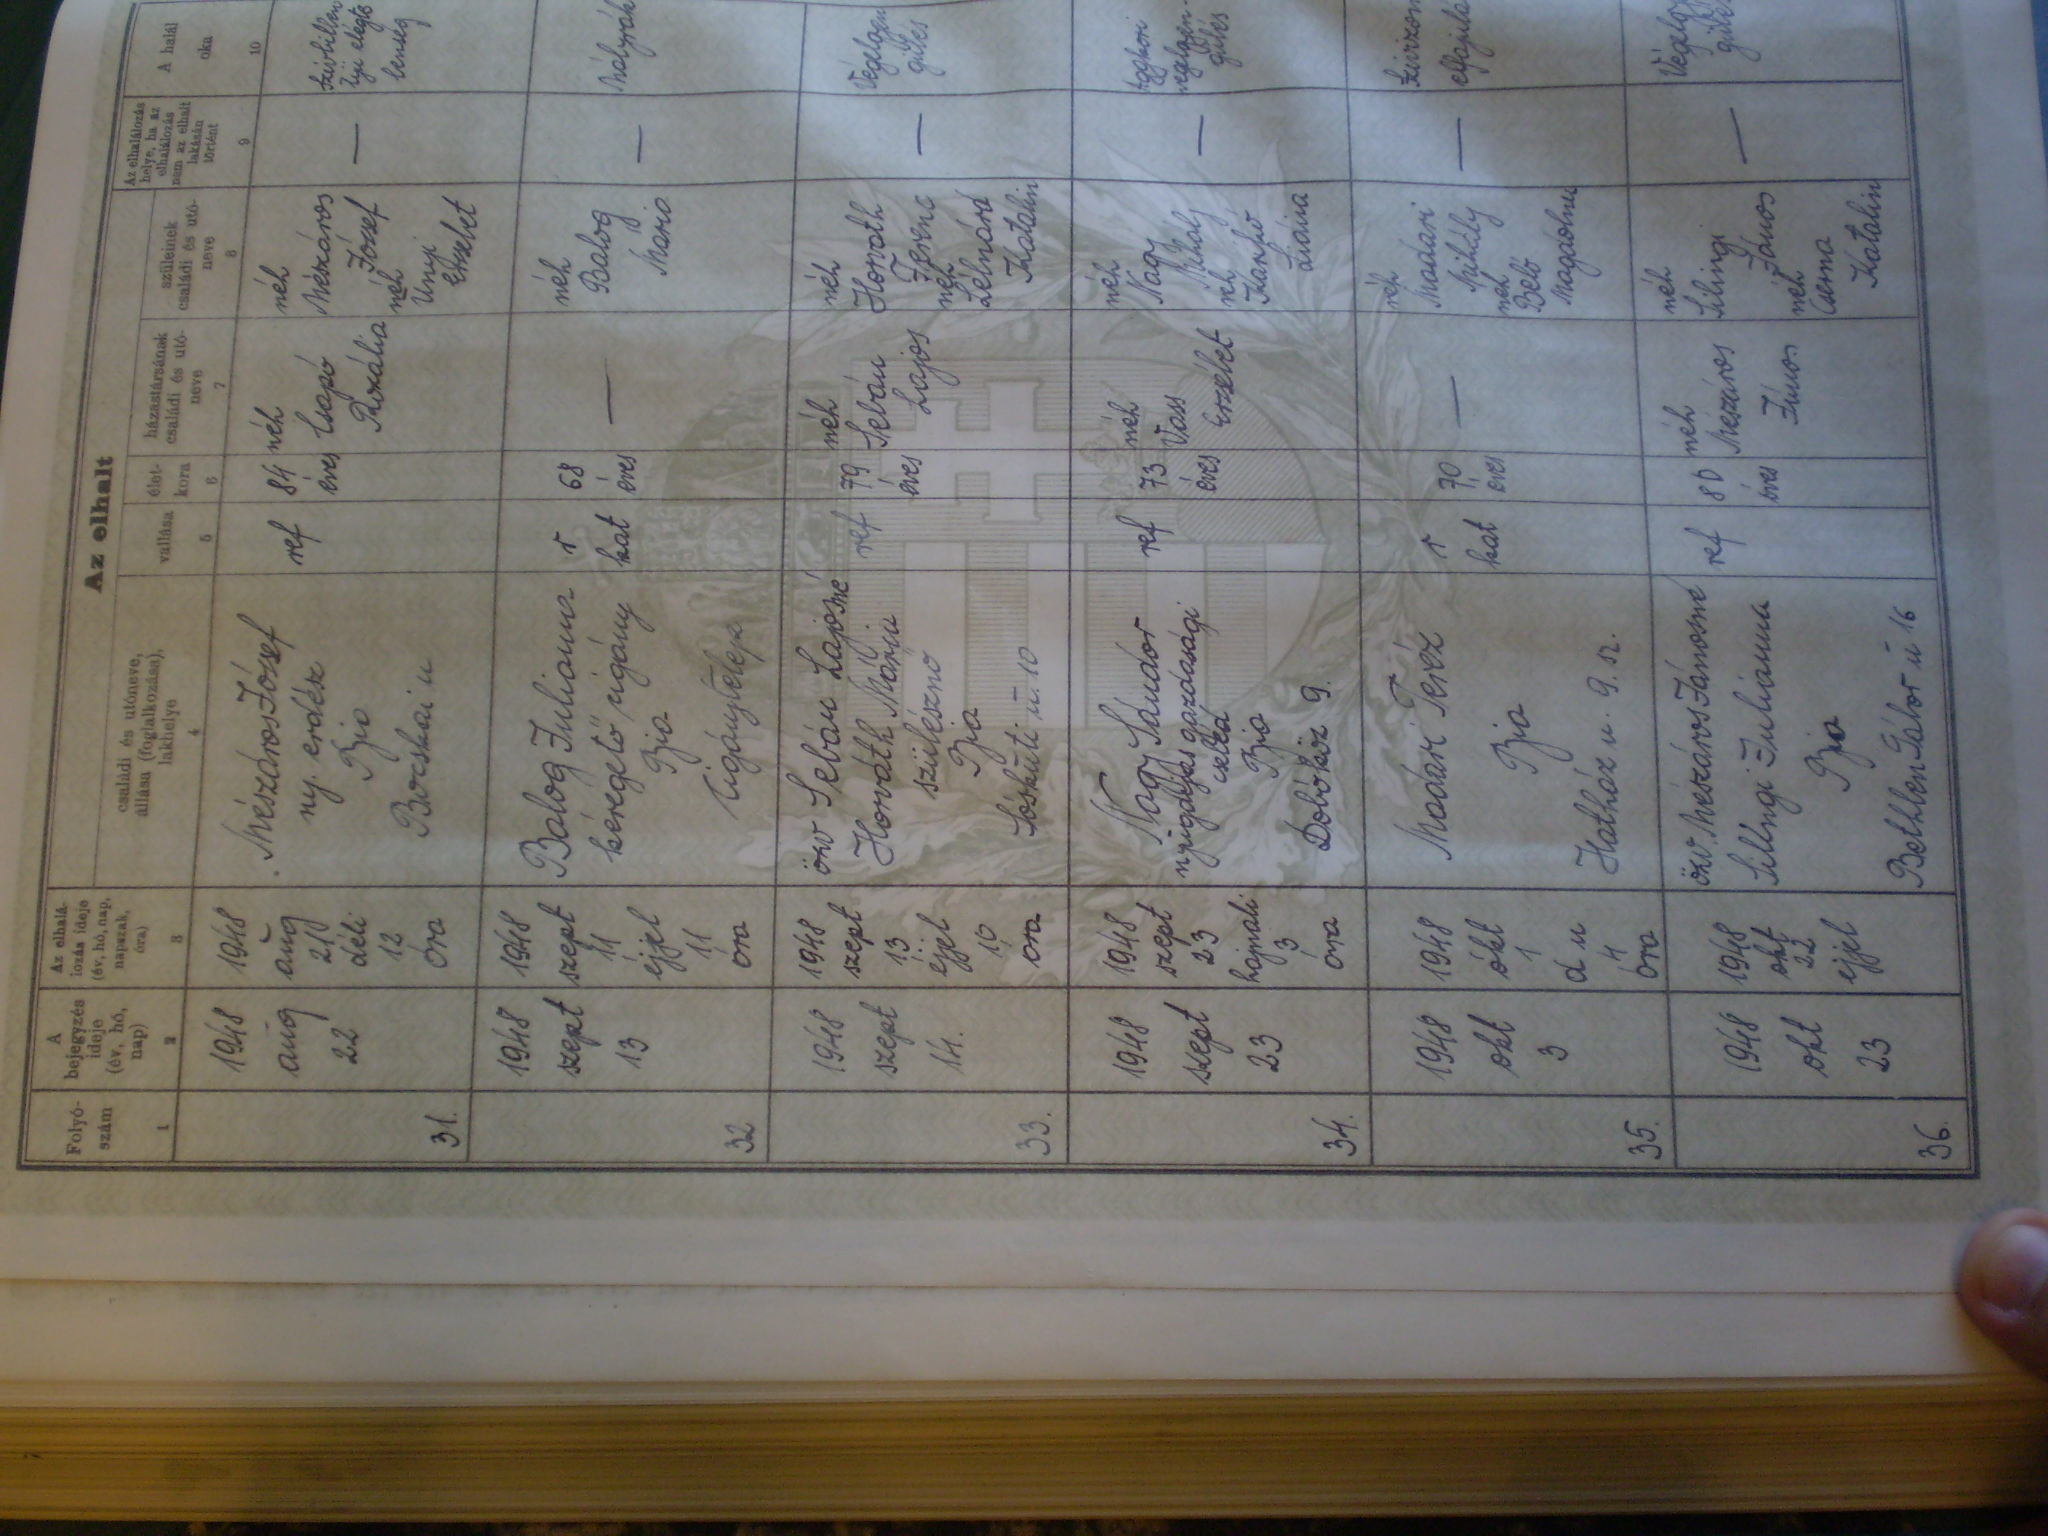 Az elhalt
Folyó-
szám
1
A
bejegyzés
ideje
(év, hó,
nap)
2
Az elhalá-
lozás ideje
(év, hó, nap,
napszak,
óra)
3
családi és utóneve,
állása (foglalkozása),
lakhelye
4
vallása
5
élet-
kora
6
házastársának
családi és utó-
neve
7
szüleinek
családi és utó-
neve
8
Az elhalálozás
helye, ha az
elhalálozás
nem az elhalt
lakásán
történt
9
A halál
oka
10
31.
1948
aug
22
1948
aug
21
déli
12
óra
Mészáros József
ny. erdész
Bia
Bocskai u
ref
84
éves
néh
Csapó
Rozália
néh
Mészáros
József
néh
Unyi
Erzsébet
—
elégte
lenség
32
1948
szept
13
1948
szept
11
éjjel
11
óra
Balog Julianna
kéregető cigány
Bia
Cigánytelep
r
kat
68
éves
—
néh
Balog
Mária
—
Mályrák
33.
1948
szept
14.
1948
szept
13
éjjel
10
óra
özv Sebán Lajosné
Horváth Mária
szülésznő
Bia
Sóskúti u 10
ref
79
éves
néh
Sebán
Lajos
néh
Horváth
Ferenc
néh
Lénárd
Katalin
—
Végelgyen
gülés
34.
1948
szept
23
1948
szept
23
hajnali
3
óra
Nagy Sándor
nyugdíjas gazdasági
cseléd
Bia
Dobóköz 9.
ref
73
éves
néh
Vass
Erzsébet
néh
Nagy
Mihály
néh
Lidia
—
Aggkori
végelgyen-
gülés
35.
1948
okt
3
1948
okt
1
d u
4
óra
Madari Teréz
Bia
Hatház u. 9. sz.
r
kat
70
éves
—
néh
Madari
Mihály
néh
Beló
Magdolna
—
36.
1948
okt
23
1948
okt
22
éjjel
özv. Mészáros Jánosné
Silingi Julianna
Bia
Bethlen Gábor u 16
ref
80
éves
néh
Mészáros
János
néh
Silingi
János
néh
Cserna
Katalin
—
Végelgy
gülés